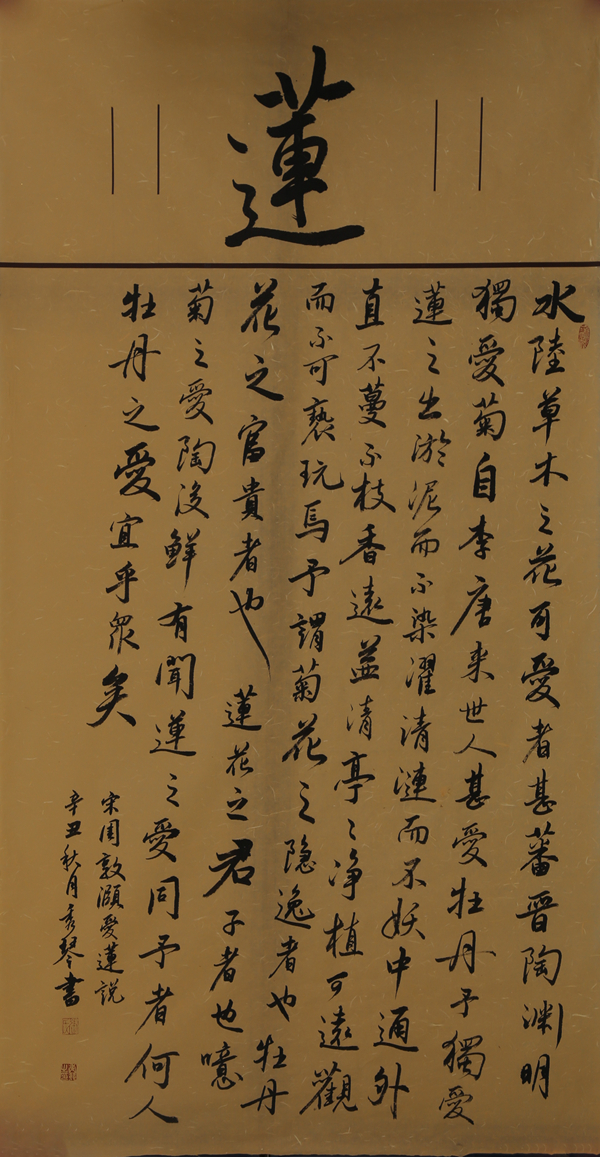 蓮
水陸草木之花可愛者甚蕃晉陶渊明
獨愛菊自李唐来世人甚愛牡丹予獨愛
蓮之出淤泥而不染濯清漣而不妖中通外
直不蔓不枝香遠益清亭〻净植可遠觀
而不可褻玩焉予謂菊花之隐逸者也牡丹
花之富貴者也蓮花之君子者也噫
菊之愛陶後鮮有聞蓮之愛同予者何人
牡丹之愛宜乎眾矣
宋周敦頤愛蓮説
辛丑秋月秀琴書